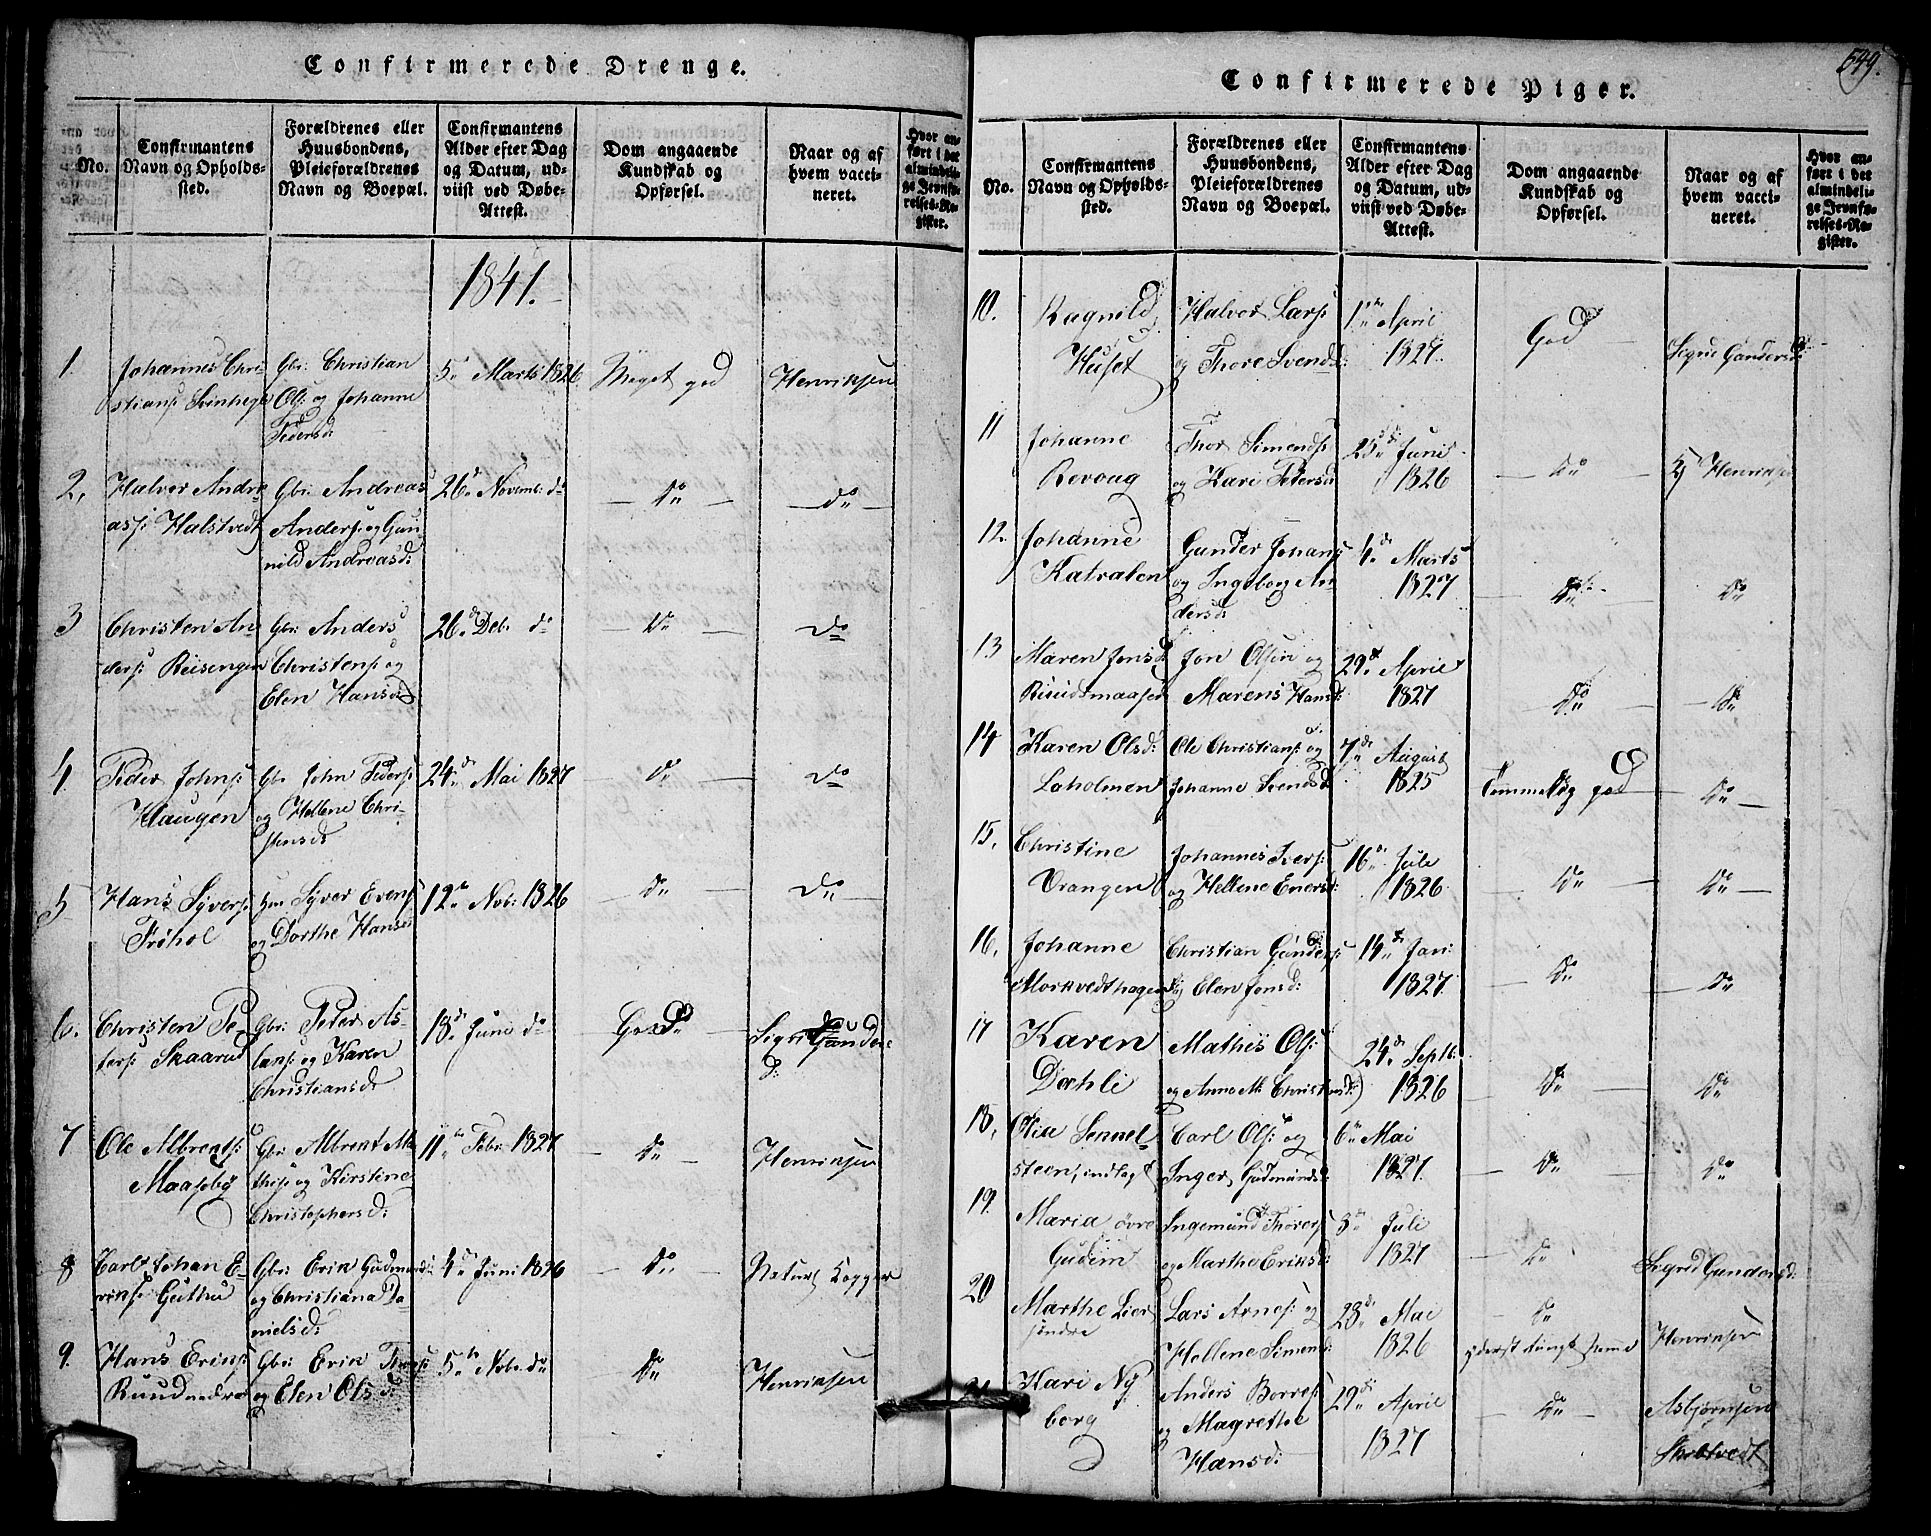 Confirmerede Drenge.
No.
Confirmantens
Navn og Opholds-
sted.
Forældrenes eller
Huusbondens,
Pleieforældrenes
Navn og Boepæl.
Confirmantens
Alder efter Dag
og Datum, ud-
viist ved Døbe-
Attest.
Dom angaaende
Kundskab og
Opførsel.
Naar og af
hvem vacci-
neret.
Hvor an-
ført i det
almindeli-
ge Jevnfø-
relses-Re-
gister.
1841.
1.
Johannes Chri-
stians:
Gbr: Christian
Ols: og Johanne
Pedersd:
5te Marts 1826
Meget god
Henriksen
2.
Halvor Andre-
ass: Halstvedt
Gbr: Andreas
Anders: og Gun-
nild Andreasd:
26d Novemb: do
do
do
3
Christen An-
ders: Reisengen
Gbr: Anders
Christens: og
Elen Hansd:
26d Deb. do
do
do
4.
Peder Johns:
Haugen
Gbr John Peders:
og Hellene Chri-
stensd:
24de Mai 1827
do
do
5
Hans Syvers:
Frøhol
Syver Evens:
og Dorthe Hansd:
12te Nob: 1826
do
do
6.
Christen Pe-
ters: Skaarud
Gbr: Peter As-
lans: og Karen
Christiansd:
18de Juni do
God
Sigri Gunders
d:
7
Ole Albrents:
Maaseby
Gbr: Albrent Ma-
this: og Kirstine
Christophersd:
11te Febr: 1827
do
Henriksen
8
Carl Johan E-
riks: Guthu
Gbr: Erik Gudmunds:
og Christiana Da-
nielsd:
4de Juni 1826
do
Naturl Kopper
9.
Hans Eriks:
Ruud nedre
Gbr: Erik
og Elen Olsd:
5te Nobr. do
do
Henriksen
549.
Confirmerede Piger.
No.
Confirmantens
Navn og Opholds-
sted.
Forældrenes eller
Huusbondens,
Pleieforældrenes
Navn og Boepæl.
Confirmantens
Alder efter Dag
og Datum, ud-
viist ved Døbe-
Attest.
Dom angaaende
Kundskab og
Opførsel.
Naar og af
hvem vacci-
neret.
Hvor an-
ført i det
almindeli-
ge Jevnfø-
relses-Re-
gister.
10.
Ragnild
Huset
Halvor Lars:
og Thore Svendsd:
1te April
1827.
God
Sigrie Gundersd:
11
Johanne
Revoug
Thor Simends:
og Kari Petersd:
25de Juni
1826
do
Henriksen
12.
Johanne
Katralen
Gunder Johans:
og Ingeborg An-
dersd:
4de Marts
1827
do
do
13
Maren Jonsd:
Jon Olsen og
Marens Hansd:
29de April
1827
do
do
14
Karen Olsd:
Laholmen
Ole Christians: og
Johanne Svendsd:
7de August
1825
Temmelig god
do
15.
Christine
Vrangen
Johannes Ivers:
og Hellene Enersd:
16de Juli
1826
do
do
16.
Johanne
Morkvedthagen
Christian Gunders:
og Elen Jonsd:
14de Jan:
1827.
do
do
17
Karen
Dæhli
Mathis Ols:
og Anna M: Christensd:
24de Septb:
1826
do
do
18.
Olia Lennel-
steen, indlag
Carl Ols: og
Inger Gudmundsd:
6te Mai
1827.
do
do
19.
Maria øvre
Gudim
Ingemund Thorers:
og Marthe Eriksd:
8de Juli
1827
do
Sigrid Gundersd:
20
Marthe Lier
søndre
Lars Arnes: og
Hellene Simensd:
28de Mai
1826
do
yderst tungt nemme
Henriksen
21
Kari Ny
borg
Anders Borres:
og Magrethe
Hansd:
29de April
1827
do
Asbjørnsen